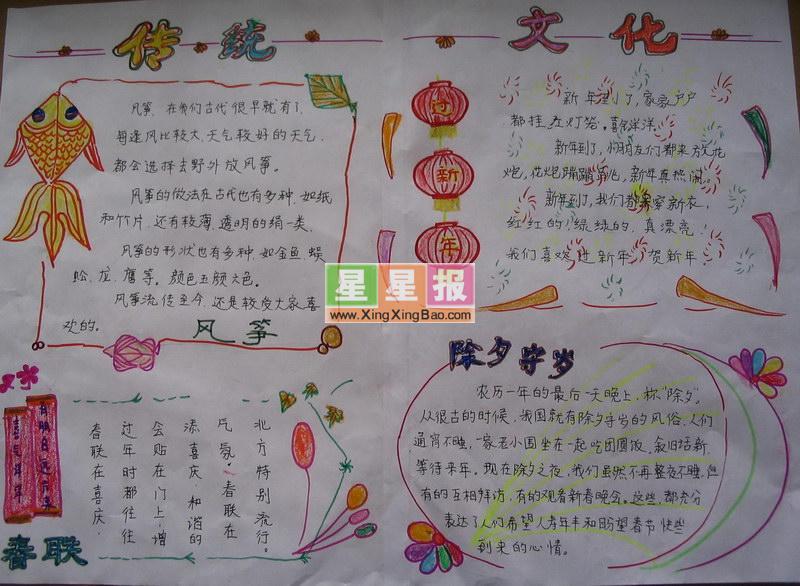 传统
文化
风筝,在我们古代很早就有了,
每逢风比较大、天气较好的天气
都会选择去野外放风筝。
风筝的做法在古代也有多种,如纸
和竹片,还有较薄、透明的绢一类,
风筝的形状也有多种,如金鱼、蜈
蚣、龙、鹰等。颜色五颜六色。
风筝流传至今,还是较受大家喜
欢的。
风筝
新年
新年到了,家家户户
都挂红灯笼。喜气洋洋。
新年到了,
们都来放花
炮,花炮蹦蹦
新年真热闹。
新年到了,我们都穿新衣,
红红的!绿绿的,真漂亮
我们喜欢过新年,贺新年
星星报
www.XingXingBao.com
春联
春联在喜庆,
过年时都往往
会贴在门上,增
添喜庆、和谐的
气氛、春联在
北方特别流行。
除夕守岁
农历一年的最后一天晚上,称“除夕”。
从很古的时候,我国就有除夕守岁的风俗,人们
通宵不睡,一家老小围坐在一起吃团圆饭,叙旧话新,
等待来年。现在除夕之夜,我们虽然不再整夜不睡,但
有的互相拜访,有的观看新春晚会。这些,都充分
表达了人们希望人寿年丰和盼望春节快些
到来的心情。